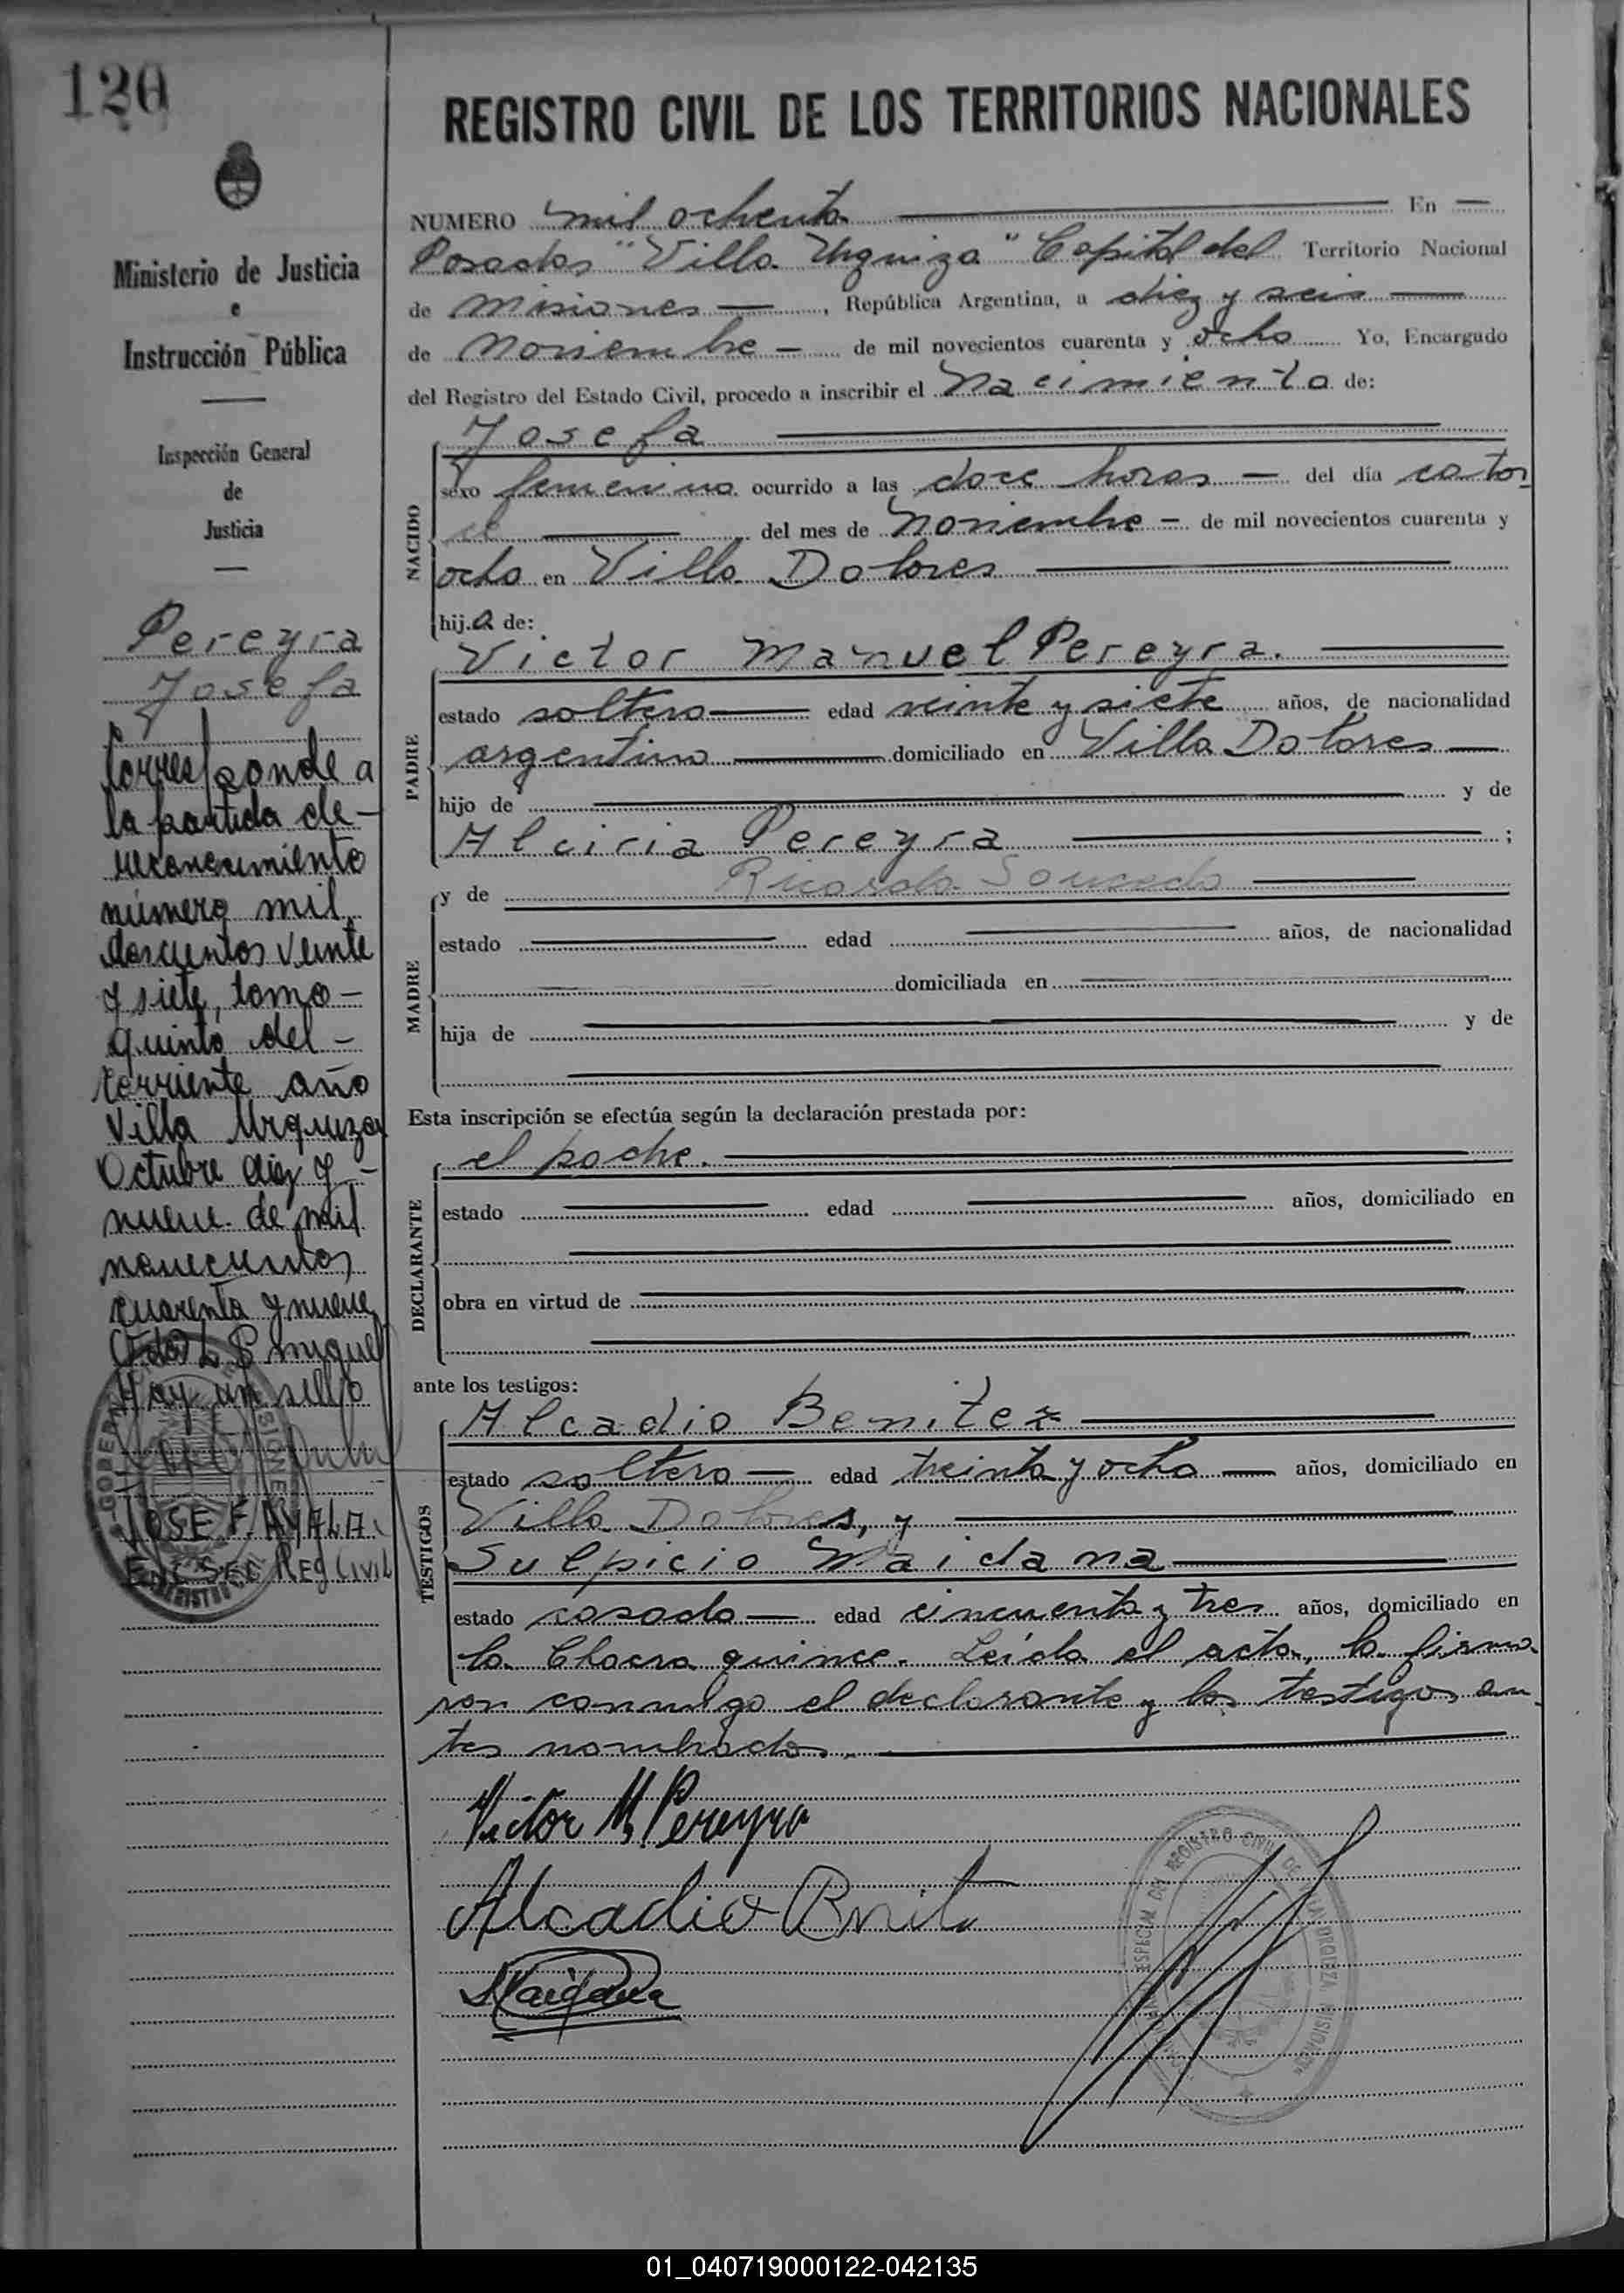 120
REGISTRO CIVIL DE LOS TERRITORIOS NACIONALES
Ministerio de Justicia
e
Instrucción Pública
Inspección General
de
Justicia
Pereyra
Josefa
Corresponde a
la partida de-
reconocimiento
número mil
doscientos veinte
y siete, tomo-
quinto del-
corriente año
Villa Urquiza
Octubre diez y-
nueve de mil
novecientos
cuarenta y nueve
Hay un sello
JOSE F. AYALA
ENC SEC REG CIVIL
NUMERO mil ochenta En
Posadas "Villa Urquiza" Capital del Territorio Nacional
de Misiones, República Argentina, a diez y seis
de Noviembre de mil novecientos cuarenta y ocho Yo, Encargado
del Registro del Estado Civil, procedo a inscribir el Nacimiento de:
NACIDO
Josefa
sexo femenino ocurrido a las doce horas del día cator
ce del mes de Noviembre de mil novecientos cuarenta y
ocho en Villa Dolores
hija de:
PADRE
Victor Manuel Pereyra.
estado soltero edad veinte y siete años, de nacionalidad
argentino domiciliado en Villa Dolores
hijo de y de
Alciria Pereyra ;
MADRE
y de Ricarda Souceda
estado edad años, de nacionalidad
domiciliada en
hija de y de
Esta inscripción se efectúa según la declaración prestada por:
DECLARANTE
el padre.
estado edad años, domiciliado en
obra en virtud de
ante los testigos:
TESTIGOS
Alcadio Benitez
estado soltero edad treinta y ocho años, domiciliado en
Villa Dolores, y
Sulpicio Maidana
estado casado edad cincuenta y tres años, domiciliado en
la Chacra quince. Leída el acta, la firma
ron conmigo el declarante y los testigos an
tes nombrados.
Victor M Pereyra
Alcadio Bnit
SMaidana
REGISTRO CIVIL DE VILLA URQUIZA, MISIONES
01_040719000122-042135